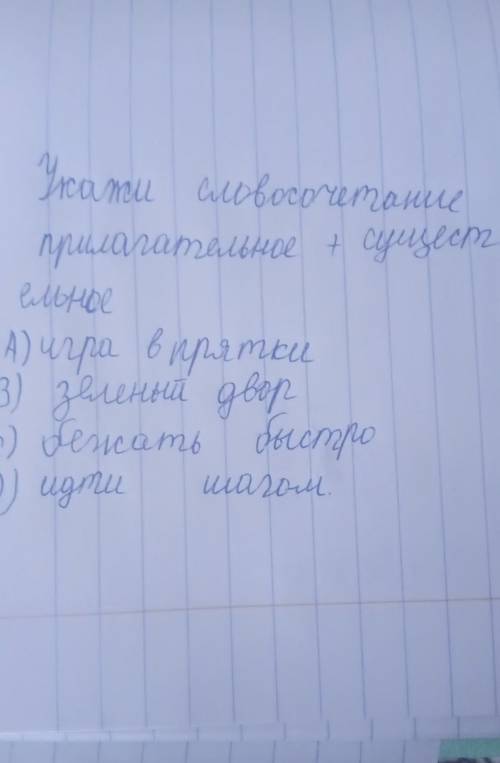 Укажи словосочетание
прилагательное + сущест
ельное
А) игра в прятки
В) зеленый двор
с) бежать быстро
D) идти шагом.